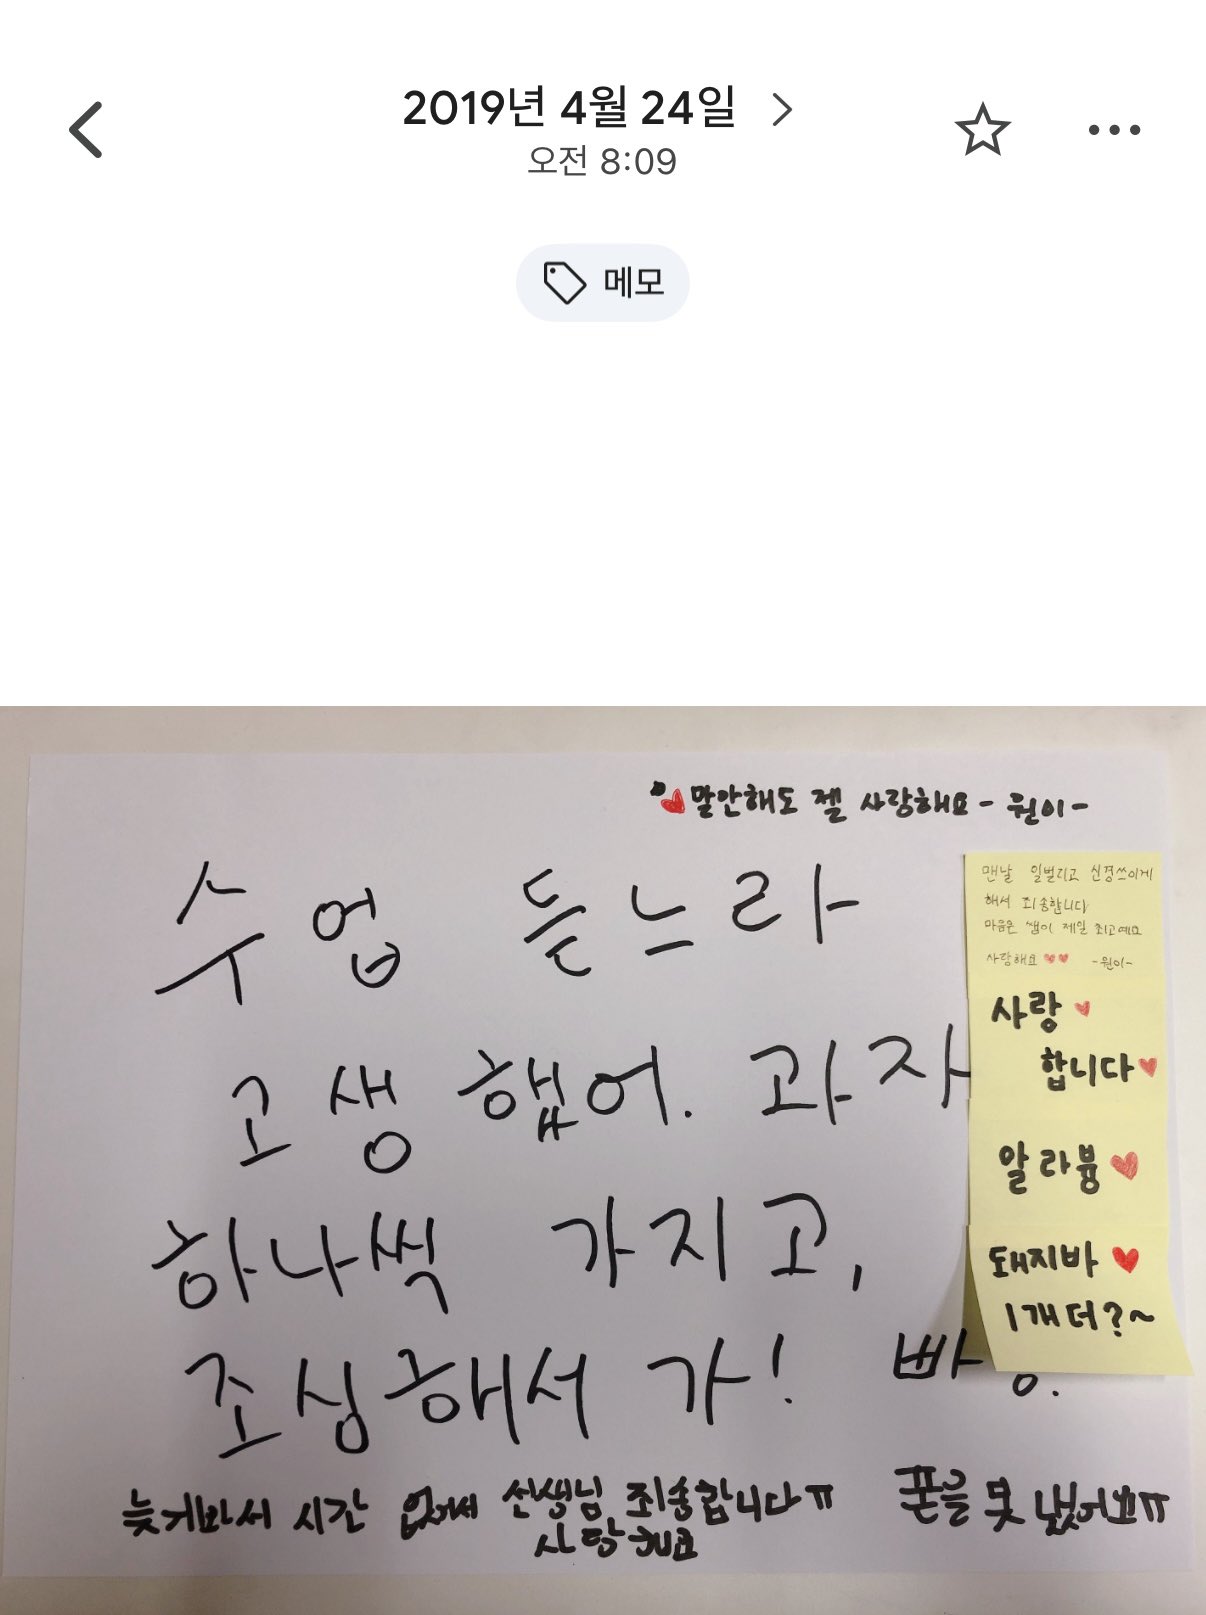 2019년 4월 24일
오전 8:09
메모
말안해도 젤 사랑해요 - 원이 -
수업 듣느라
고생했어. 과자
하나씩 가지고,
조심해서 가! 빠
맨날 일벌리고 신경쓰이게
해서 죄송합니다
마음은 쌤이 제일 최고예요
사랑해요 ♥♥ -원이-
사랑♥
합니다♥
알라븅♥
돼지바♥
1개 더?~
늦게봐서 시간 없어서 선생님 죄송합니다ㅠ 폰을 못 냈어요ㅠ
사랑해요